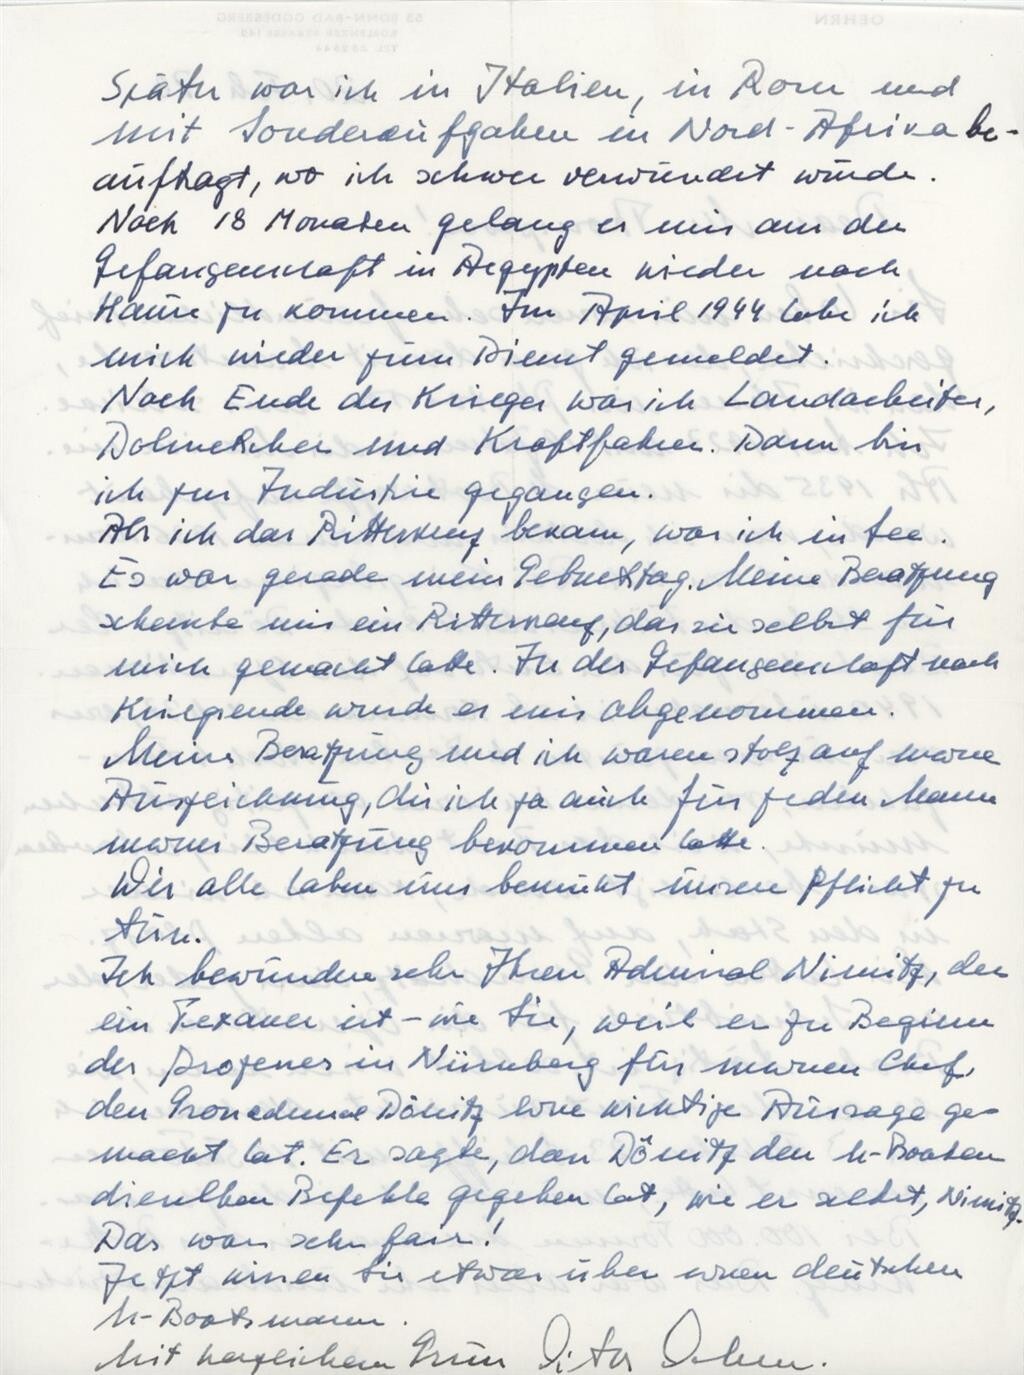 Später war ich in Italien, in Rom und
mit Sonderaufgaben in Nord-Afrika be-
auftragt, wo ich schwer verwundet wurde.
Nach 18 Monaten gelang es mir aus der
Gefangenschaft in Aegypten wieder nach
Hause zu kommen. Im April 1944 habe ich
mich wieder zum Dienst gemeldet.
Nach Ende des Krieges war ich Landarbeiter,
Dolmetscher und Kraftfahrer. Dann bin
ich zur Industrie gegangen.
Als ich das Ritterkreuz bekam, war ich in See.
Es war gerade mein Geburtstag. Meine Besatzung
schenkte mir ein Ritterkreuz, das sie selbst für
mich gemacht hatte. In der Gefangenschaft nach
Kriegsende wurde es mir abgenommen.
Meine Besatzung und ich waren stolz auf meine
Auszeichnung, die ich ja auch für jeden Mann
meiner Besatzung bekommen hatte.
Wir alle haben uns bemüht unsere Pflicht zu
tun.
Ich bewundere sehr Ihren Admiral Nimitz, der
ein Texaner ist – wie Sie, weil er zu Beginn
des Prozesses in Nürnberg für meinen Chef,
den Grossadmiral Dönitz eine wichtige Aussage ge-
macht hat. Er sagte, dass Dönitz den U-Booten
dieselben Befehle gegeben hat, wie er selbst, Nimitz.
Das war sehr fair!
Jetzt wissen Sie etwas über einen deutschen
U-Bootsmann.
Mit herzlichem Gruss
OEHRN
53 BONN-BAD GODESBERG